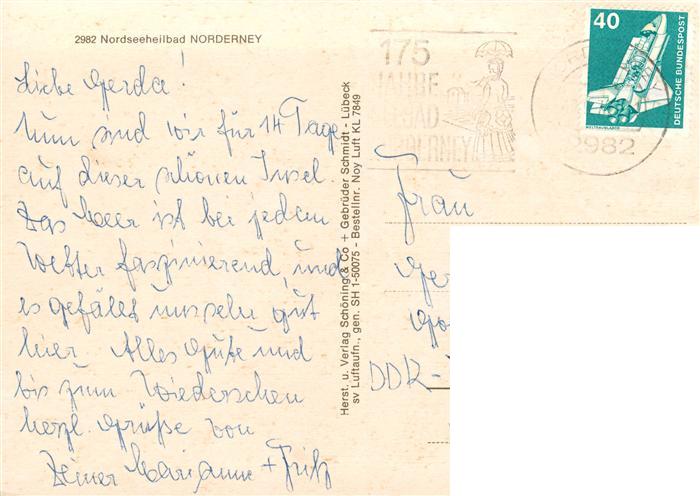 2982 Nordseeheilbad NORDERNEY
Liebe Gerda!
Nun sind wir für 14 Tage
auf dieser schönen Insel.
Das Meer ist bei jedem
Wetter faszinierend, und
es gefällt uns sehr gut
hier. Alles Gute und
bis zum Wiedersehen
herzl. Grüße von
Deiner Marianne + Fritz
Herst. u. Verlag Schöning & Co + Gebrüder Schmidt - Lübeck
sv Luftaufn., gen. SH 1-50075 - Bestellnr. Noy Luft KL 7849
175
JAHRE
BAD
NORDERNEY
2982
40
DEUTSCHE BUNDESPOST
WELTRAUMLABOR
Frau
Ger
DDR-